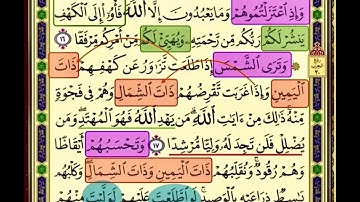 وَإِذِ ٱعْتَزَلْتُمُوهُمْ وَمَا يَعْبُدُونَ إِلَّا ٱللَّهَ فَأْوُۥٓا۟ إِلَى ٱلْكَهْفِ
يَنشُرْ لَكُمْ رَبُّكُم مِّن رَّحْمَتِهِۦ وَيُهَيِّئْ لَكُم مِّنْ أَمْرِكُم مِّرْفَقًا ١٦
وَتَرَى ٱلشَّمْسَ إِذَا طَلَعَت تَّزَٰوَرُ عَن كَهْفِهِمْ ذَاتَ
ٱلْيَمِينِ وَإِذَا غَرَبَت تَّقْرِضُهُمْ ذَاتَ ٱلشِّمَالِ وَهُمْ فِى فَجْوَةٍ
مِّنْهُ ذَٰلِكَ مِنْ ءَايَٰتِ ٱللَّهِ مَن يَهْدِ ٱللَّهُ فَهُوَ ٱلْمُهْتَدِ وَمَن
يُضْلِلْ فَلَن تَجِدَ لَهُۥ وَلِيًّا مُّرْشِدًا ١٧ وَتَحْسَبُهُمْ أَيْقَاظًا
وَهُمْ رُقُودٌ وَنُقَلِّبُهُمْ ذَاتَ ٱلْيَمِينِ وَذَاتَ ٱلشِّمَالِ وَكَلْبُهُم
بَٰسِطٌ ذِرَاعَيْهِ بِٱلْوَصِيدِ لَوِ ٱطَّلَعْتَ عَلَيْهِمْ لَوَلَّيْتَ مِنْهُمْ